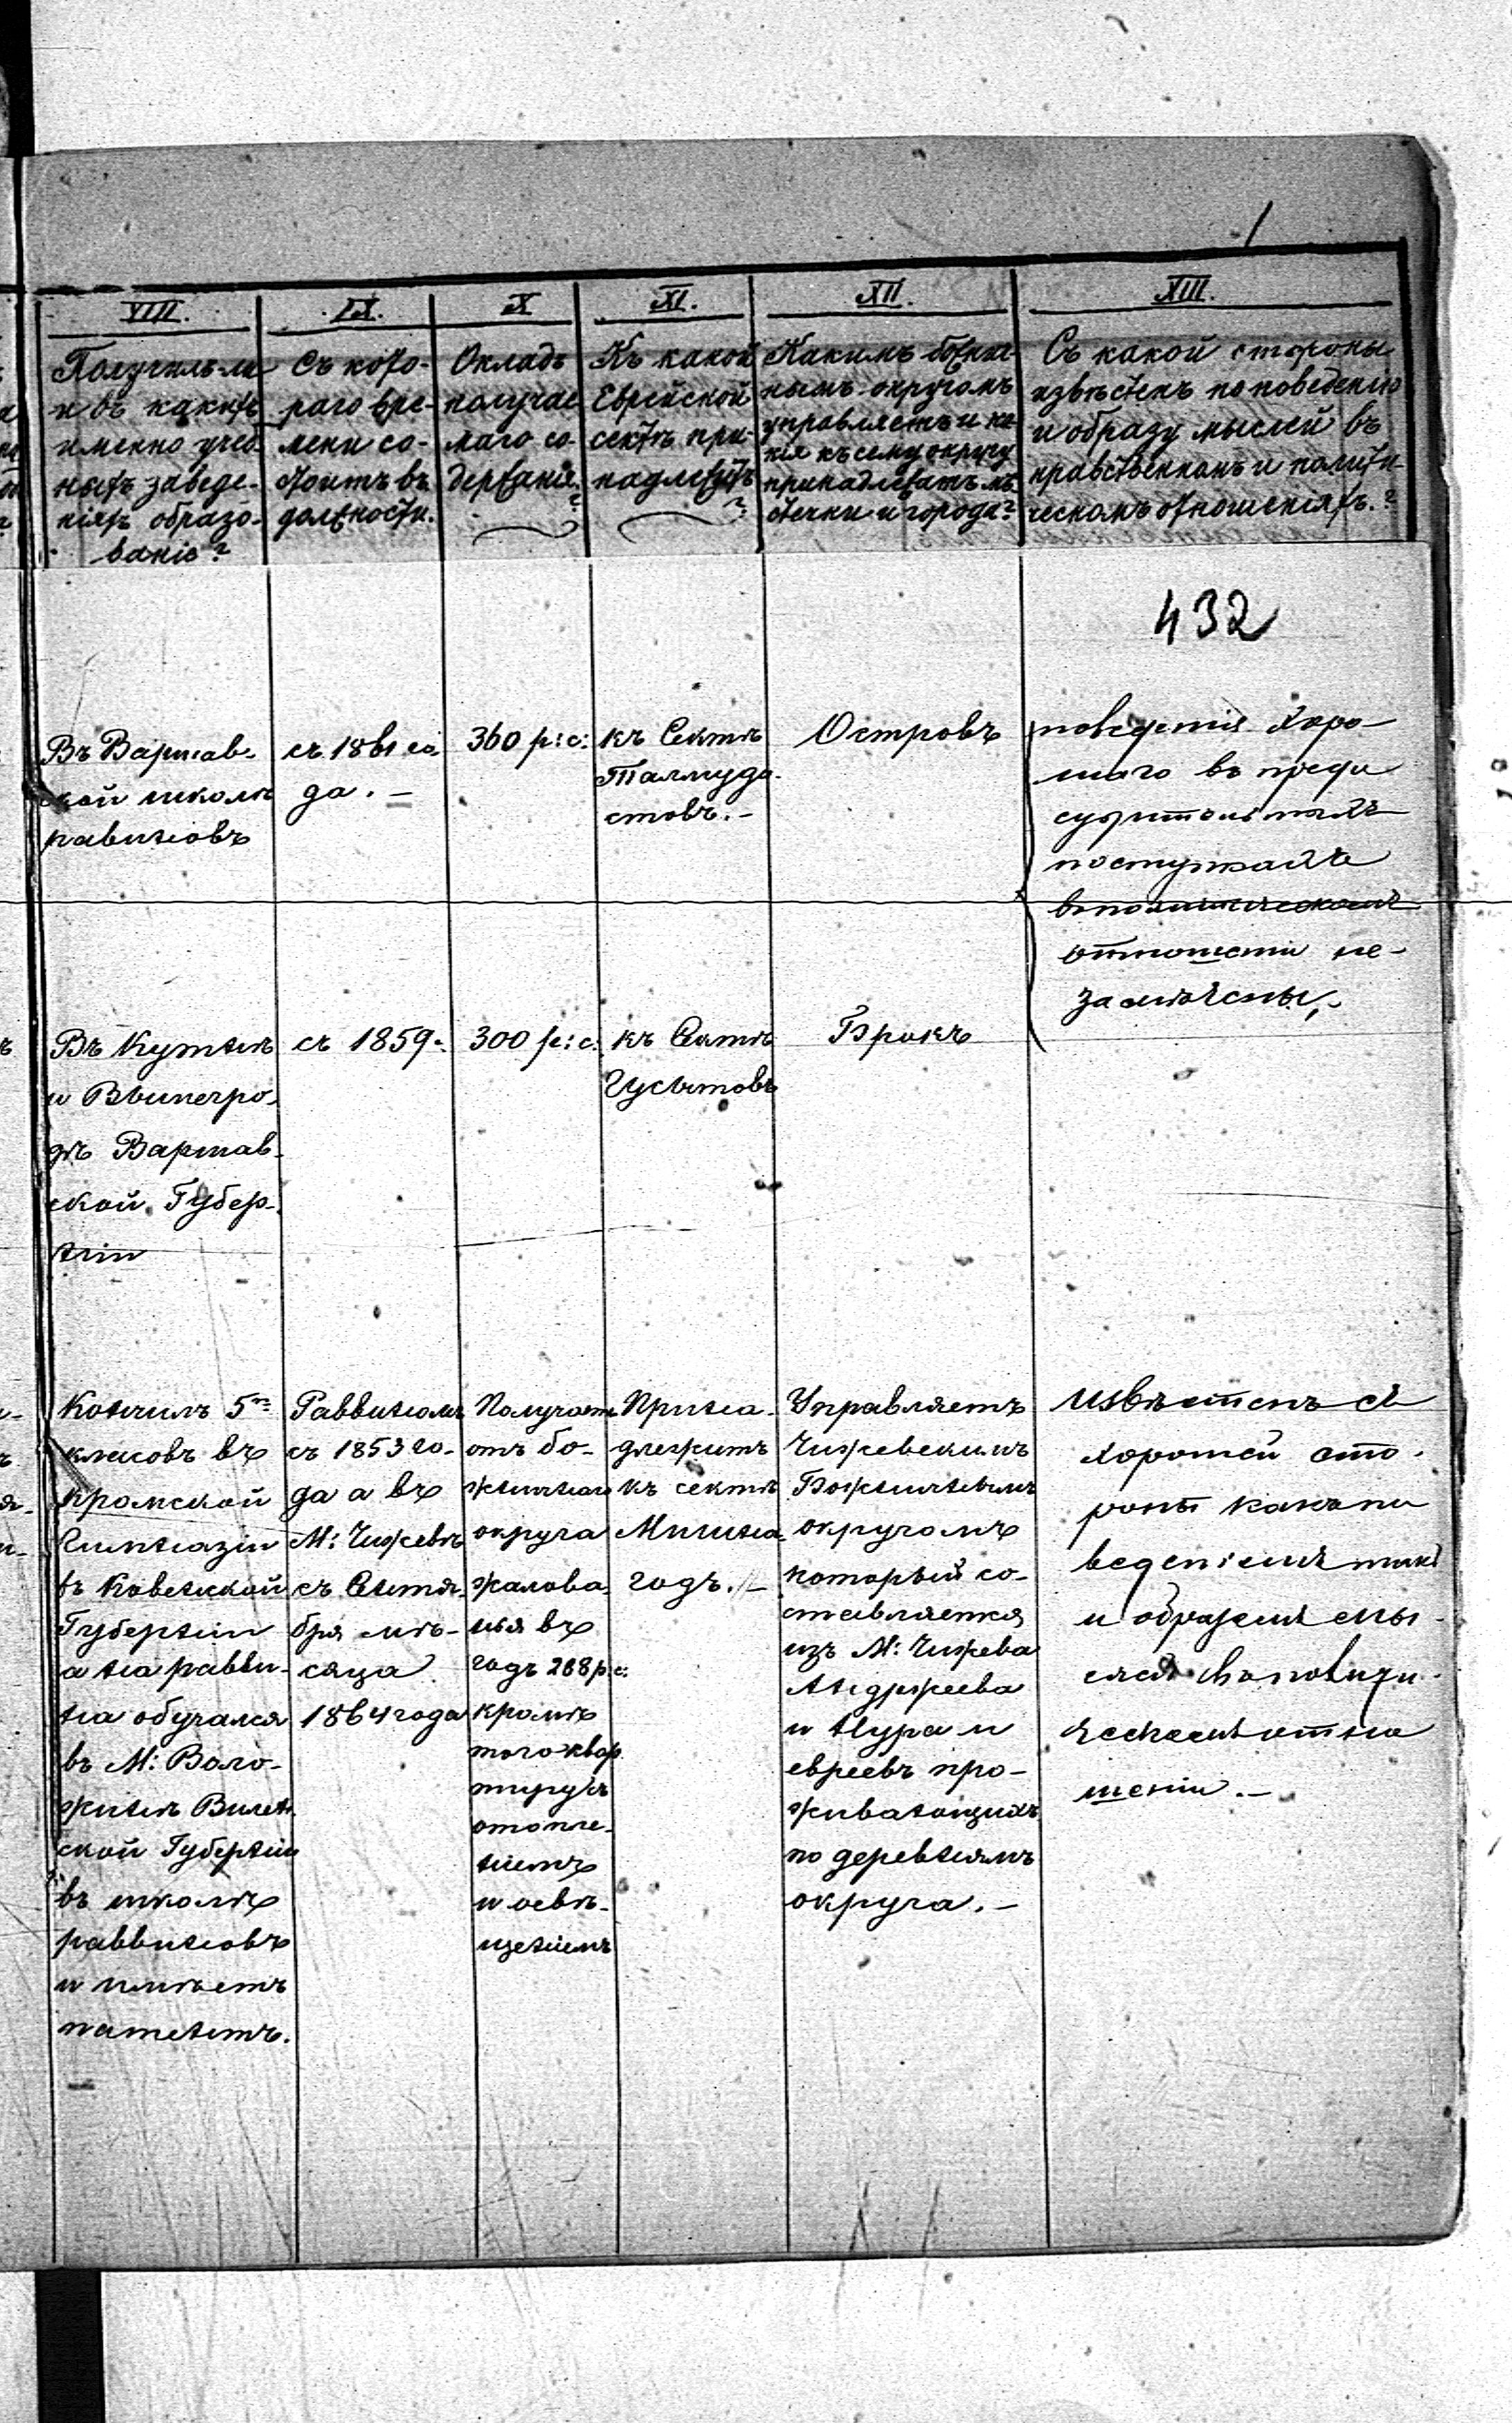 VIII.
Получилъ ли
и въ какихъ
именно учеб-
ныхъ заведе-
нiяхъ образо-
ванiе?
IX.
Съ кото-
раго вре-
мени со-
стоитъ въ
должности.
X
Окладъ
получае
маго со
держанiя.
?
XI.
Къ какой
Еврейской
сектѣ при-
надлежитъ
?
XII.
Какимъ божнич-
нымъ округомъ
управляетъ и ка-
кiя къ сему округу
принадлежатъ мѣ-
стечки и города?
XIII.
Съ какой стороны
извѣстенъ по поведенiю
и образу мыслей въ
нравственномъ и полити-
ческомъ отношенiяхъ.?
432
Въ Варшав-
ской школѣ
равиновъ
съ 1861 го
да. –
360 р: с:
къ Сектѣ
Талмуди-
стовъ. –
Островъ
поведенiя хоро-
шаго въ преди
судительныхъ
поступкахъ
въ политическомъ
отношенiи не-
замѣчены,
Въ Кутнѣ
и Вышегро-
дѣ Варшав-
ской Губер-
нiи
съ 1859 г.
300 р: с:
къ Сектѣ
Гуситовъ
Брокъ
Кончилъ 5ть
класовъ въ
Гимназiи
въ Ковенской
Губернiи
а на равви-
на обучался
въ М: Воло-
жинѣ Вилен-
ской Губернiи
въ школѣ
раввиновъ
и имѣетъ
патентъ.
Раввиномъ
съ 1853 го-
да а въ
М: Чижевѣ
съ Сентя-
бря мѣ-
сяца
1864 года
Получаетъ
отъ бо-
жничнаго
округа
жалова-
нья въ
годъ 268 р. с:
кромѣ
того квар
тируѣ
отопле-
нiемъ
и освѣ-
щенiемъ
Прина-
длежитъ
къ сектѣ
Мишна-
годъ. –
Управляетъ
Чижевскимъ
Божничнымъ
округомъ
который со-
ставляется
изъ М: Чижева
Андржеева
и Нура и
евреевъ про-
живающихъ
по деревнямъ
округа. –
Извѣстенъ съ
хорошей сто-
роны какъ по
веденiемъ такъ
и образомъ мы-
слей въ полити-
ческомъ отно
шенiи. –